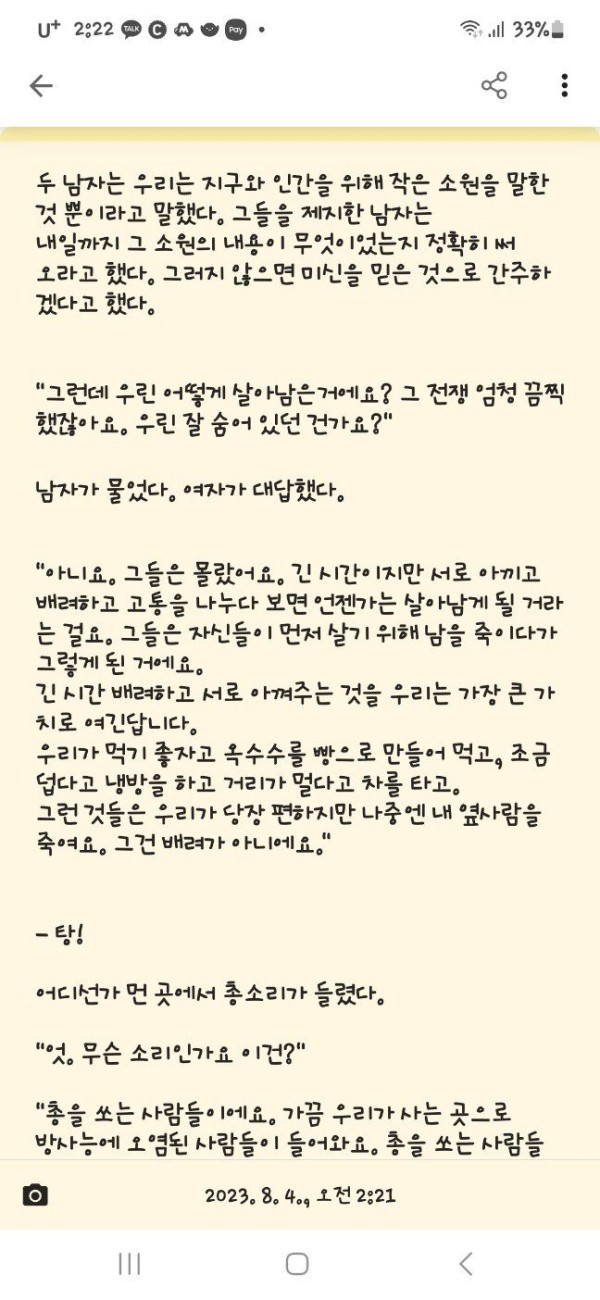 U+ 2:22 TALK C Pay • 33%
두 남자는 우리는 지구와 인간을 위해 작은 소원을 말한
것 뿐이라고 말했다. 그들을 제지한 남자는
내일까지 그 소원의 내용이 무엇이었는지 정확히 써
오라고 했다. 그러지 않으면 미신을 믿은 것으로 간주하
겠다고 했다.
"그런데 우린 어떻게 살아남은거에요? 그 전쟁 엄청 끔찍
했잖아요. 우린 잘 숨어 있던 건가요?"
남자가 물었다. 여자가 대답했다.
"아니요. 그들은 몰랐어요. 긴 시간이지만 서로 아끼고
배려하고 고통을 나누다 보면 언젠가는 살아남게 될 거라
는 걸요. 그들은 자신들이 먼저 살기 위해 남을 죽이다가
그렇게 된 거에요.
긴 시간 배려하고 서로 아껴주는 것을 우리는 가장 큰 가
치로 여긴답니다.
우리가 먹기 좋자고 옥수수를 빵으로 만들어 먹고, 조금
덥다고 냉방을 하고 거리가 멀다고 차를 타고.
그런 것들은 우리가 당장 편하지만 나중엔 내 옆사람을
죽여요. 그건 배려가 아니에요."
- 탕!
어디선가 먼 곳에서 총소리가 들렸다.
"엇. 무슨 소리인가요 이건?"
"총을 쏘는 사람들이에요. 가끔 우리가 사는 곳으로
방사능에 오염된 사람들이 들어와요. 총을 쏘는 사람들
2023. 8. 4., 오전 2:21